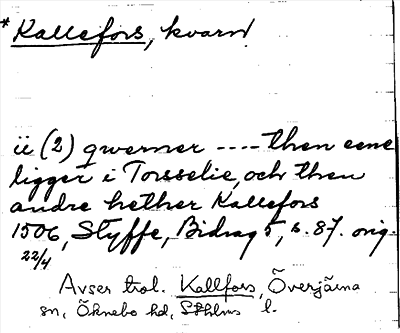 *Kallefors, kvarn
ii (2) qwerner ---- then eene
ligger i Torsselie, och then
andre hether Kallefors
1506, Styffe, Bidrag 5, s. 87. orig.
22/4
Avser trol. Kallfors, Överjärna
sn, Öknebo hd, Sthlms l.